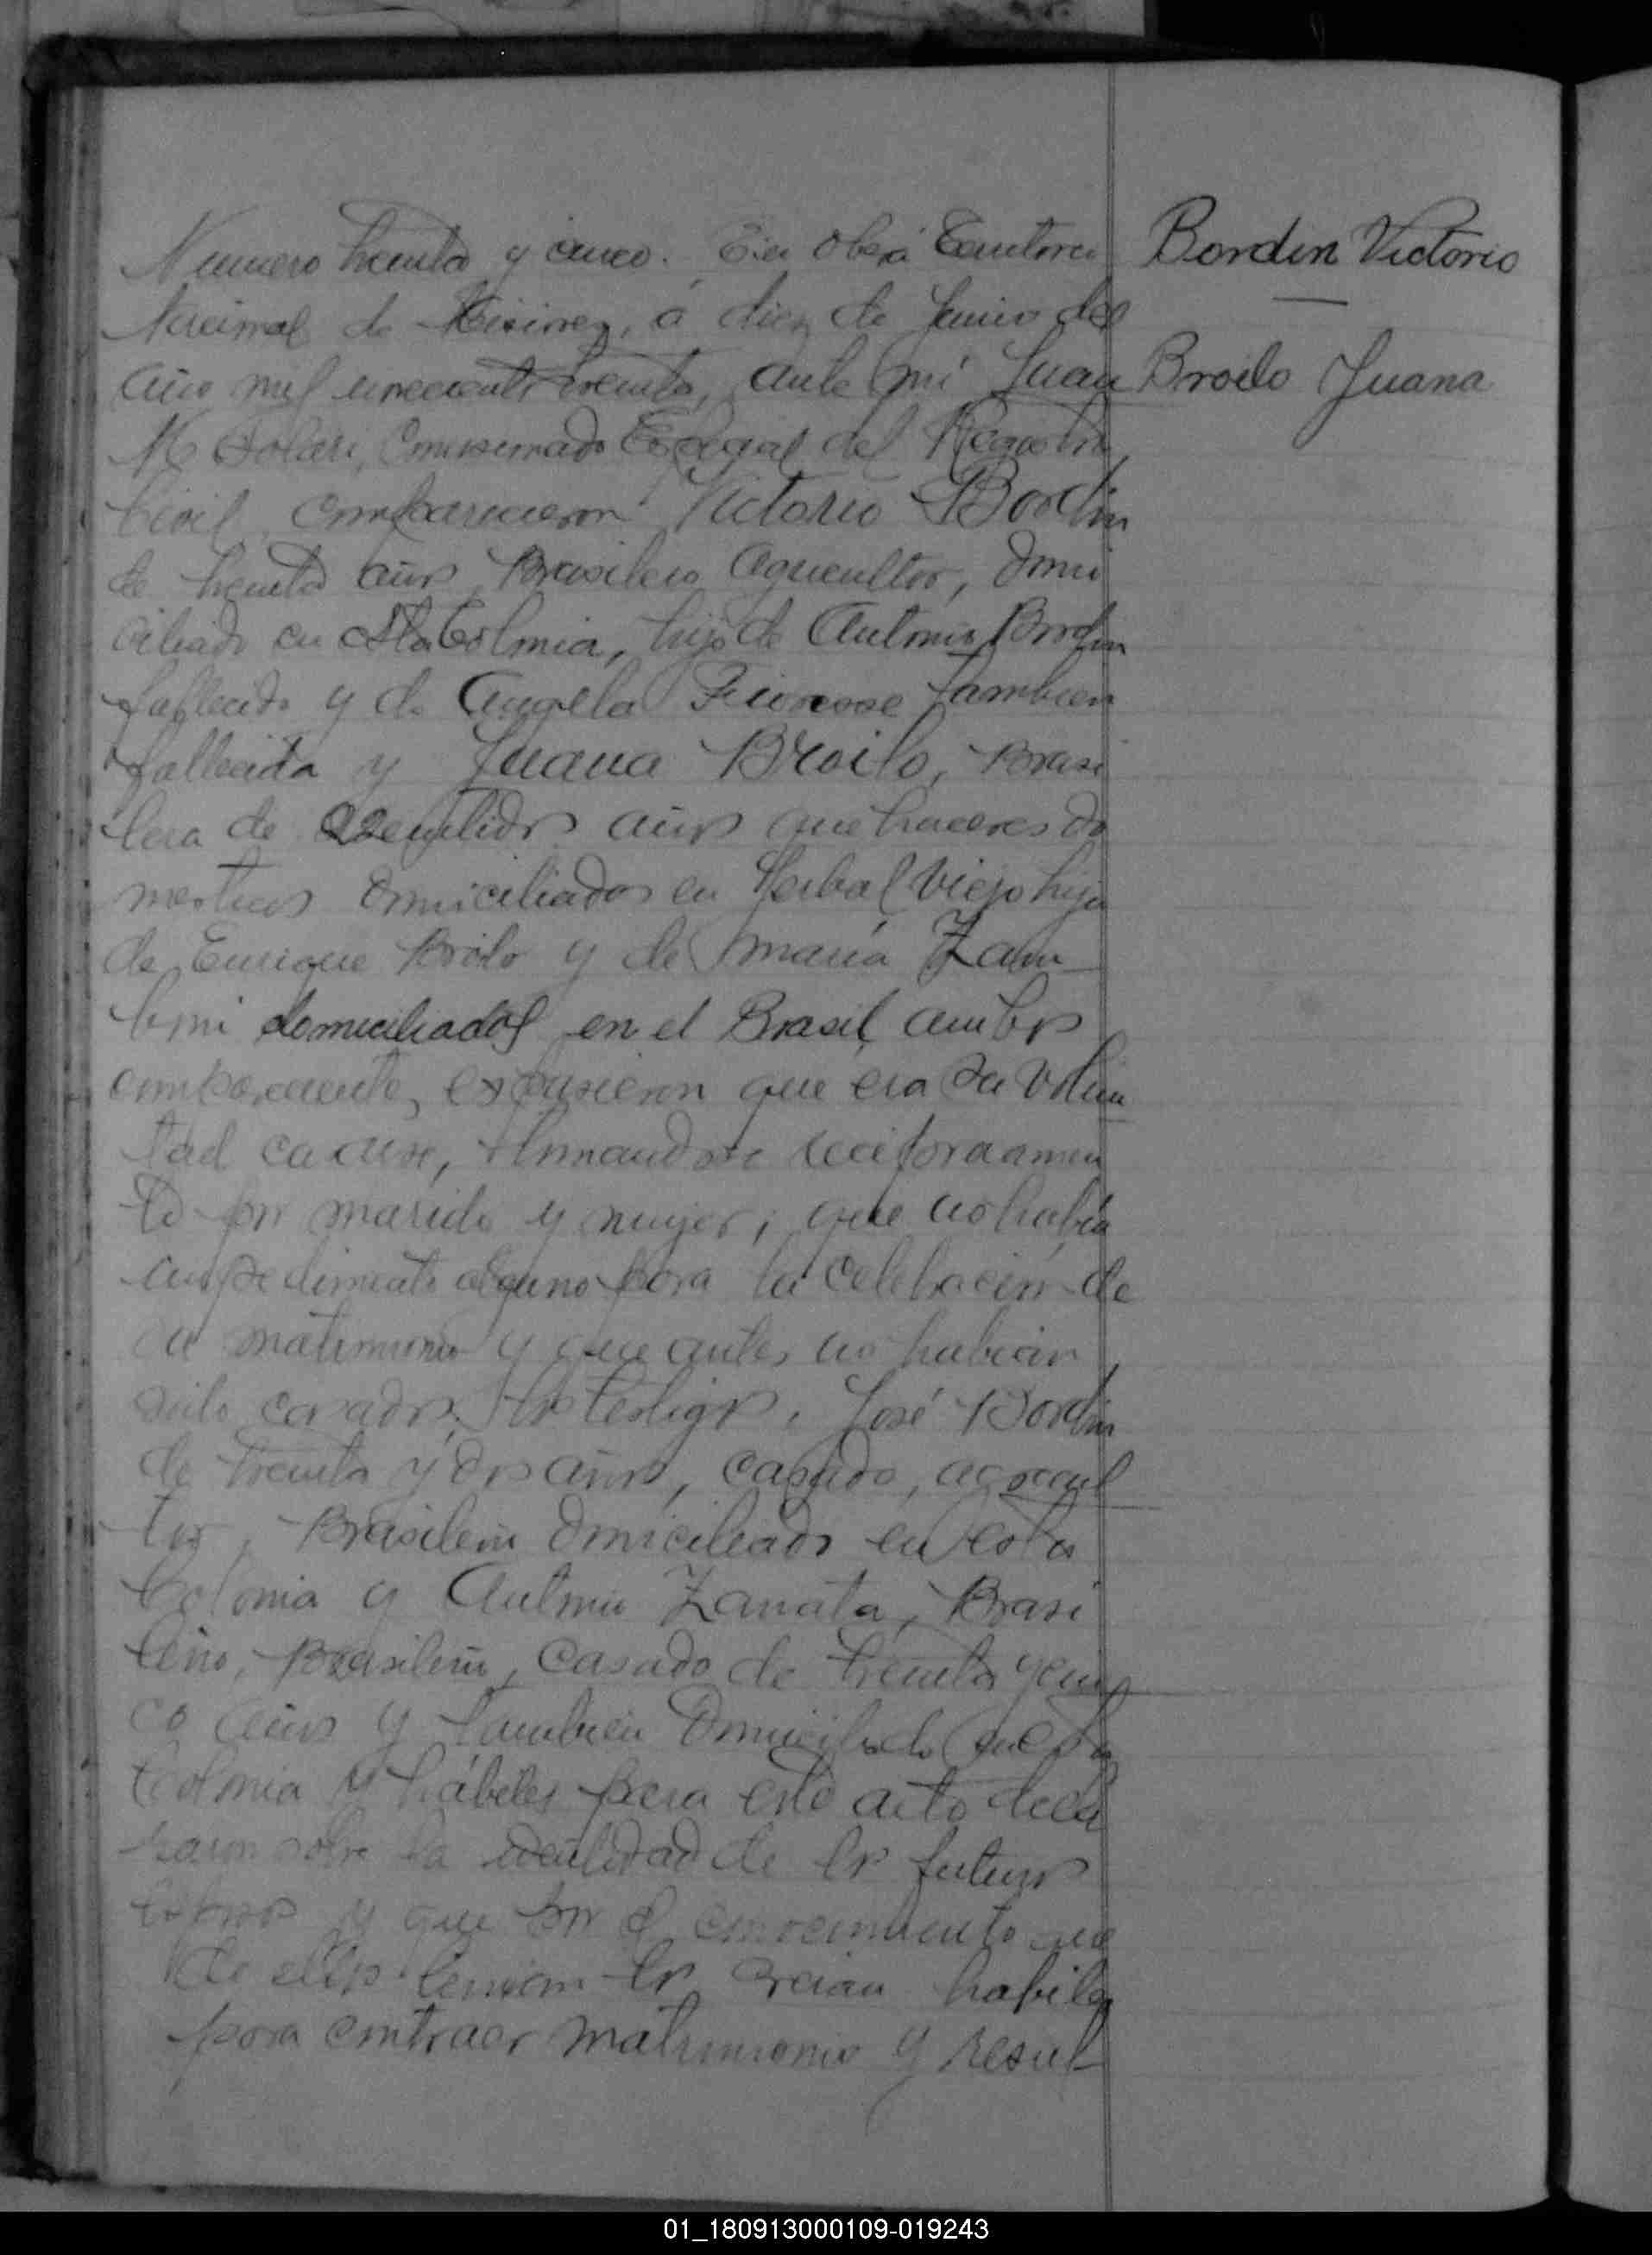 Numero treinta y cinco. En Oberá Territorio
Nacional de Misiones, á diez de Junio del
año mil novecientos treinta, ante mí Juan
M Solari, Comisionado Especial del Registro
Civil, comparecieron Victorio Bordin
de treinta años, Brasilero agricultor, domi
ciliado en esta Colonia, hijo de Antonio Bordin
fallecido y de Angela Fiorese tambien
fallecida y Juana Broilo, Brasi
lera de años quehaceres do
mesticos domiciliados en Yerbal Viejo hija
de Enrique Broilo y de María Zam
boni domiciliados en el Brasil, ambos
comparecientes, expusieron que era su volun
tad casarse, tomandose reciprocamen
te por marido y mujer; que no había
impedimento alguno para la celebracion de
su matrimonio y que antes no habian
sido casados. Los testigos, José Bordin
de treinta y dos años, casado, agricul
tor, Brasileño domiciliado en esta
Colonia y Antonio Zanata, Brasi
leño, Brasileño, casado de treinta y cin
co años y tambien domiciliado en esta
Colonia y hábiles para este acto decla
raron sobre la identidad de los futuros
esposos y que por el conocimiento que
de ellos tenian los creian habiles
para contraer matrimonio y resul
Bordin Victorio
Broilo Juana
01_180913000109-019243